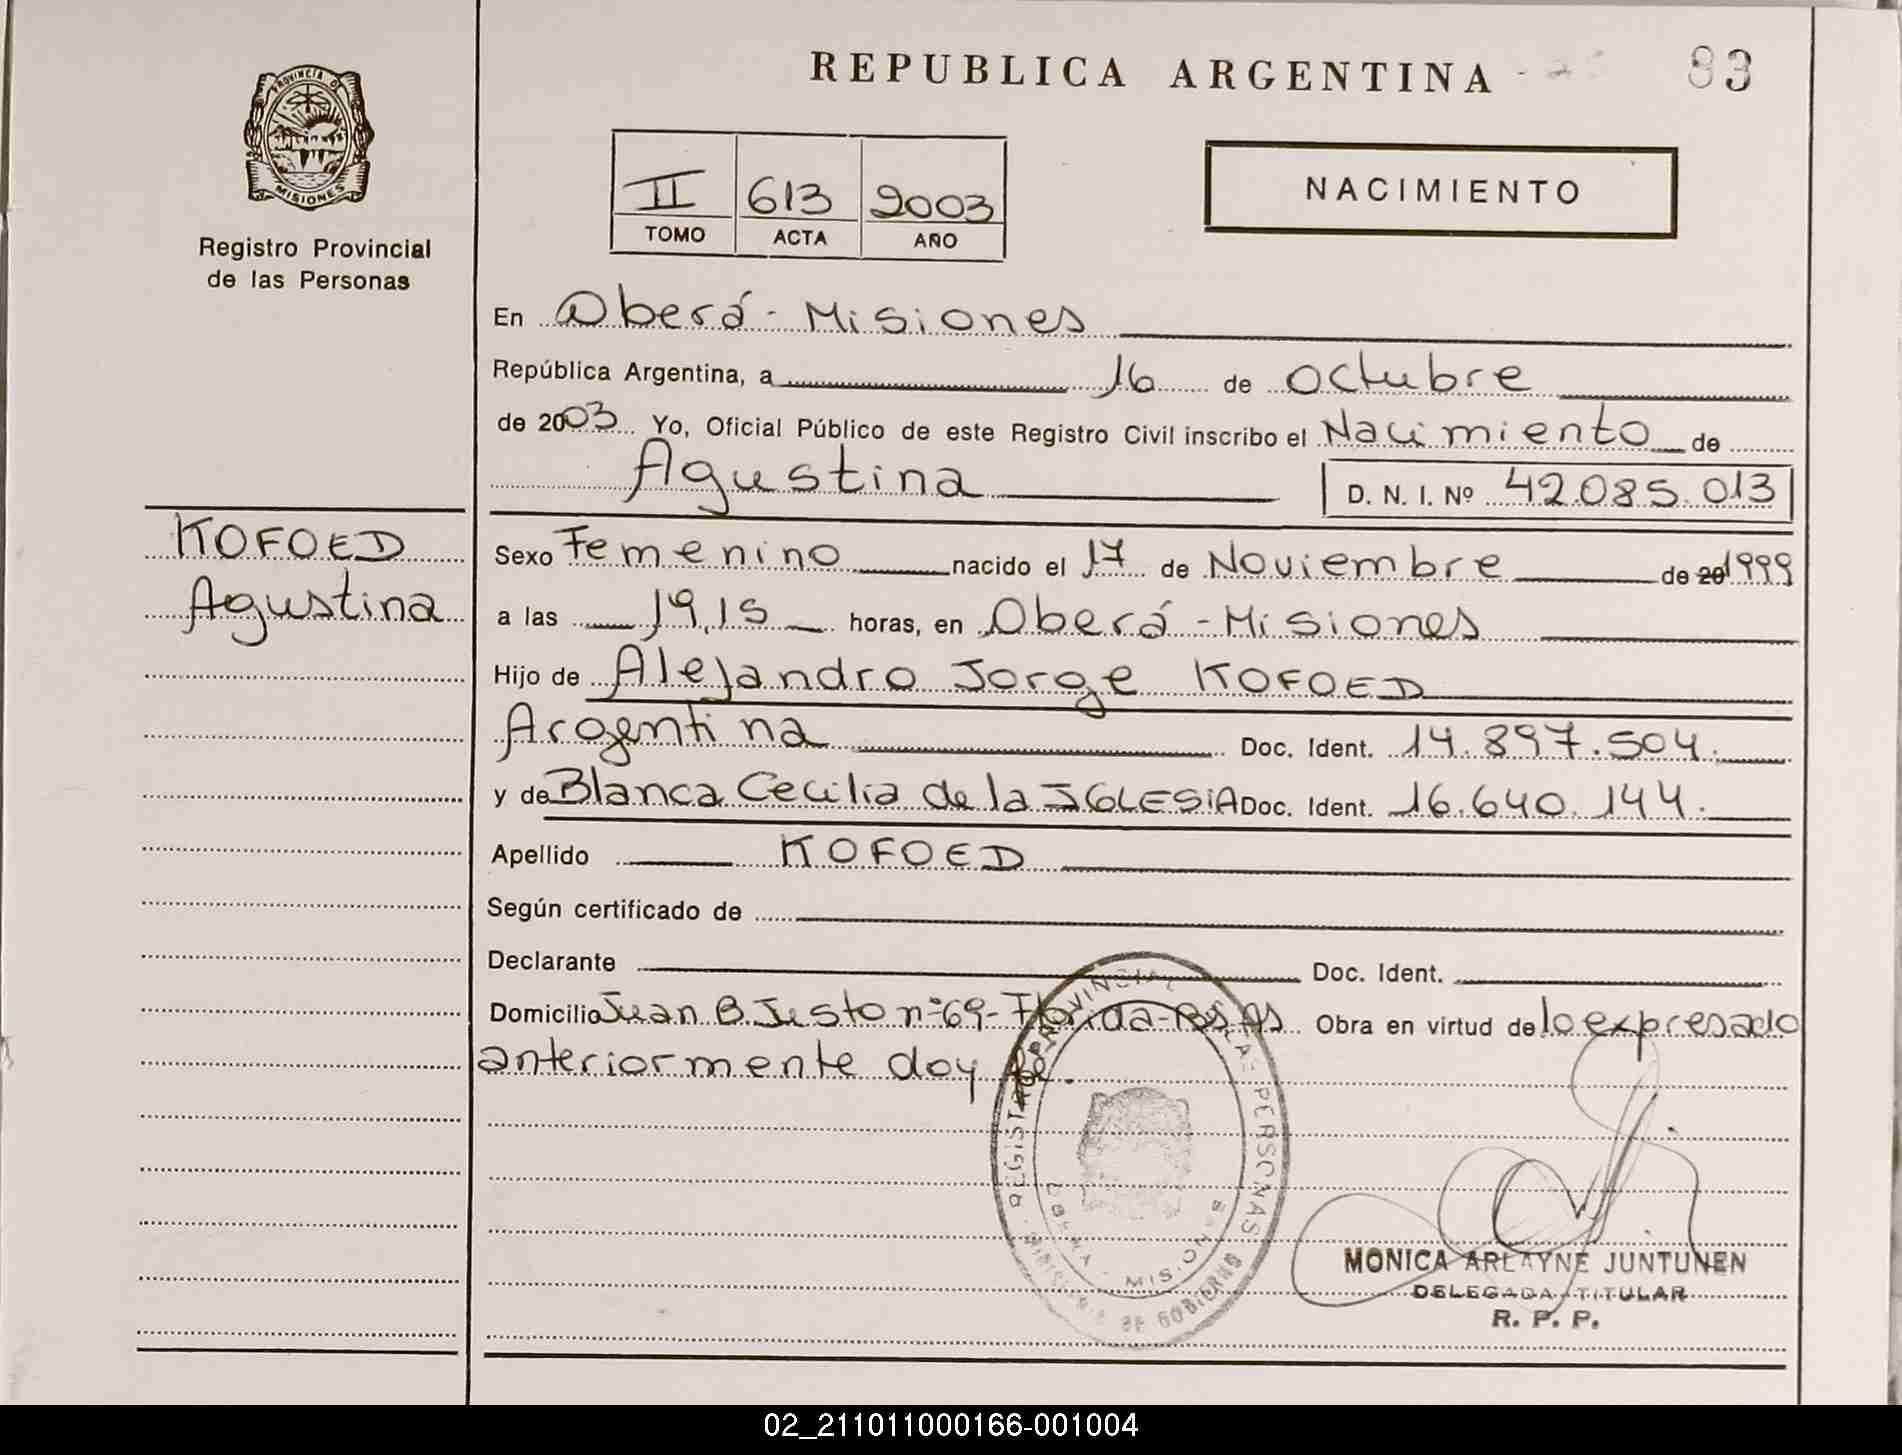 REPUBLICA ARGENTINA
93
PROVINCIA DE
MISIONES
Registro Provincial
de las Personas
II 613 2003
TOMO ACTA AÑO
NACIMIENTO
En Oberá - Misiones
República Argentina, a 16 de Octubre
de 2003 Yo, Oficial Público de este Registro Civil inscribo el Nacimiento de
Agustina D. N. I. Nº 42.085.013
KOFOED
Agustina
Sexo Femenino nacido el 17 de Noviembre de 20 1999
a las 19,15 horas, en Oberá - Misiones
Hijo de Alejandro Jorge KOFOED
Argentina Doc. Ident. 14.897.504.
y de Blanca Cecilia de la IGLESIA Doc. Ident. 16.640.144.
Apellido KOFOED
Según certificado de
Declarante Doc. Ident.
Domicilio Juan B. Justo nº 69 - Florida - Bs. As Obra en virtud de lo expresado
anteriormente doy fe.
REGISTRO PROVINCIAL DE LAS PERSONAS
OBERA - MISIONES
MINISTERIO DE GOBIERNO
MONICA ARLAYNE JUNTUNEN
DELEGADA TITULAR
R. P. P.
02_211011000166-001004